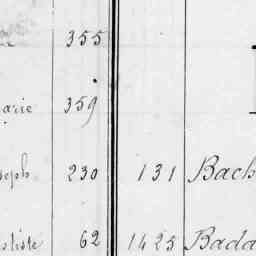 355
arie 359
seph 230 131 Bach
ptiste 62 1425 Bada